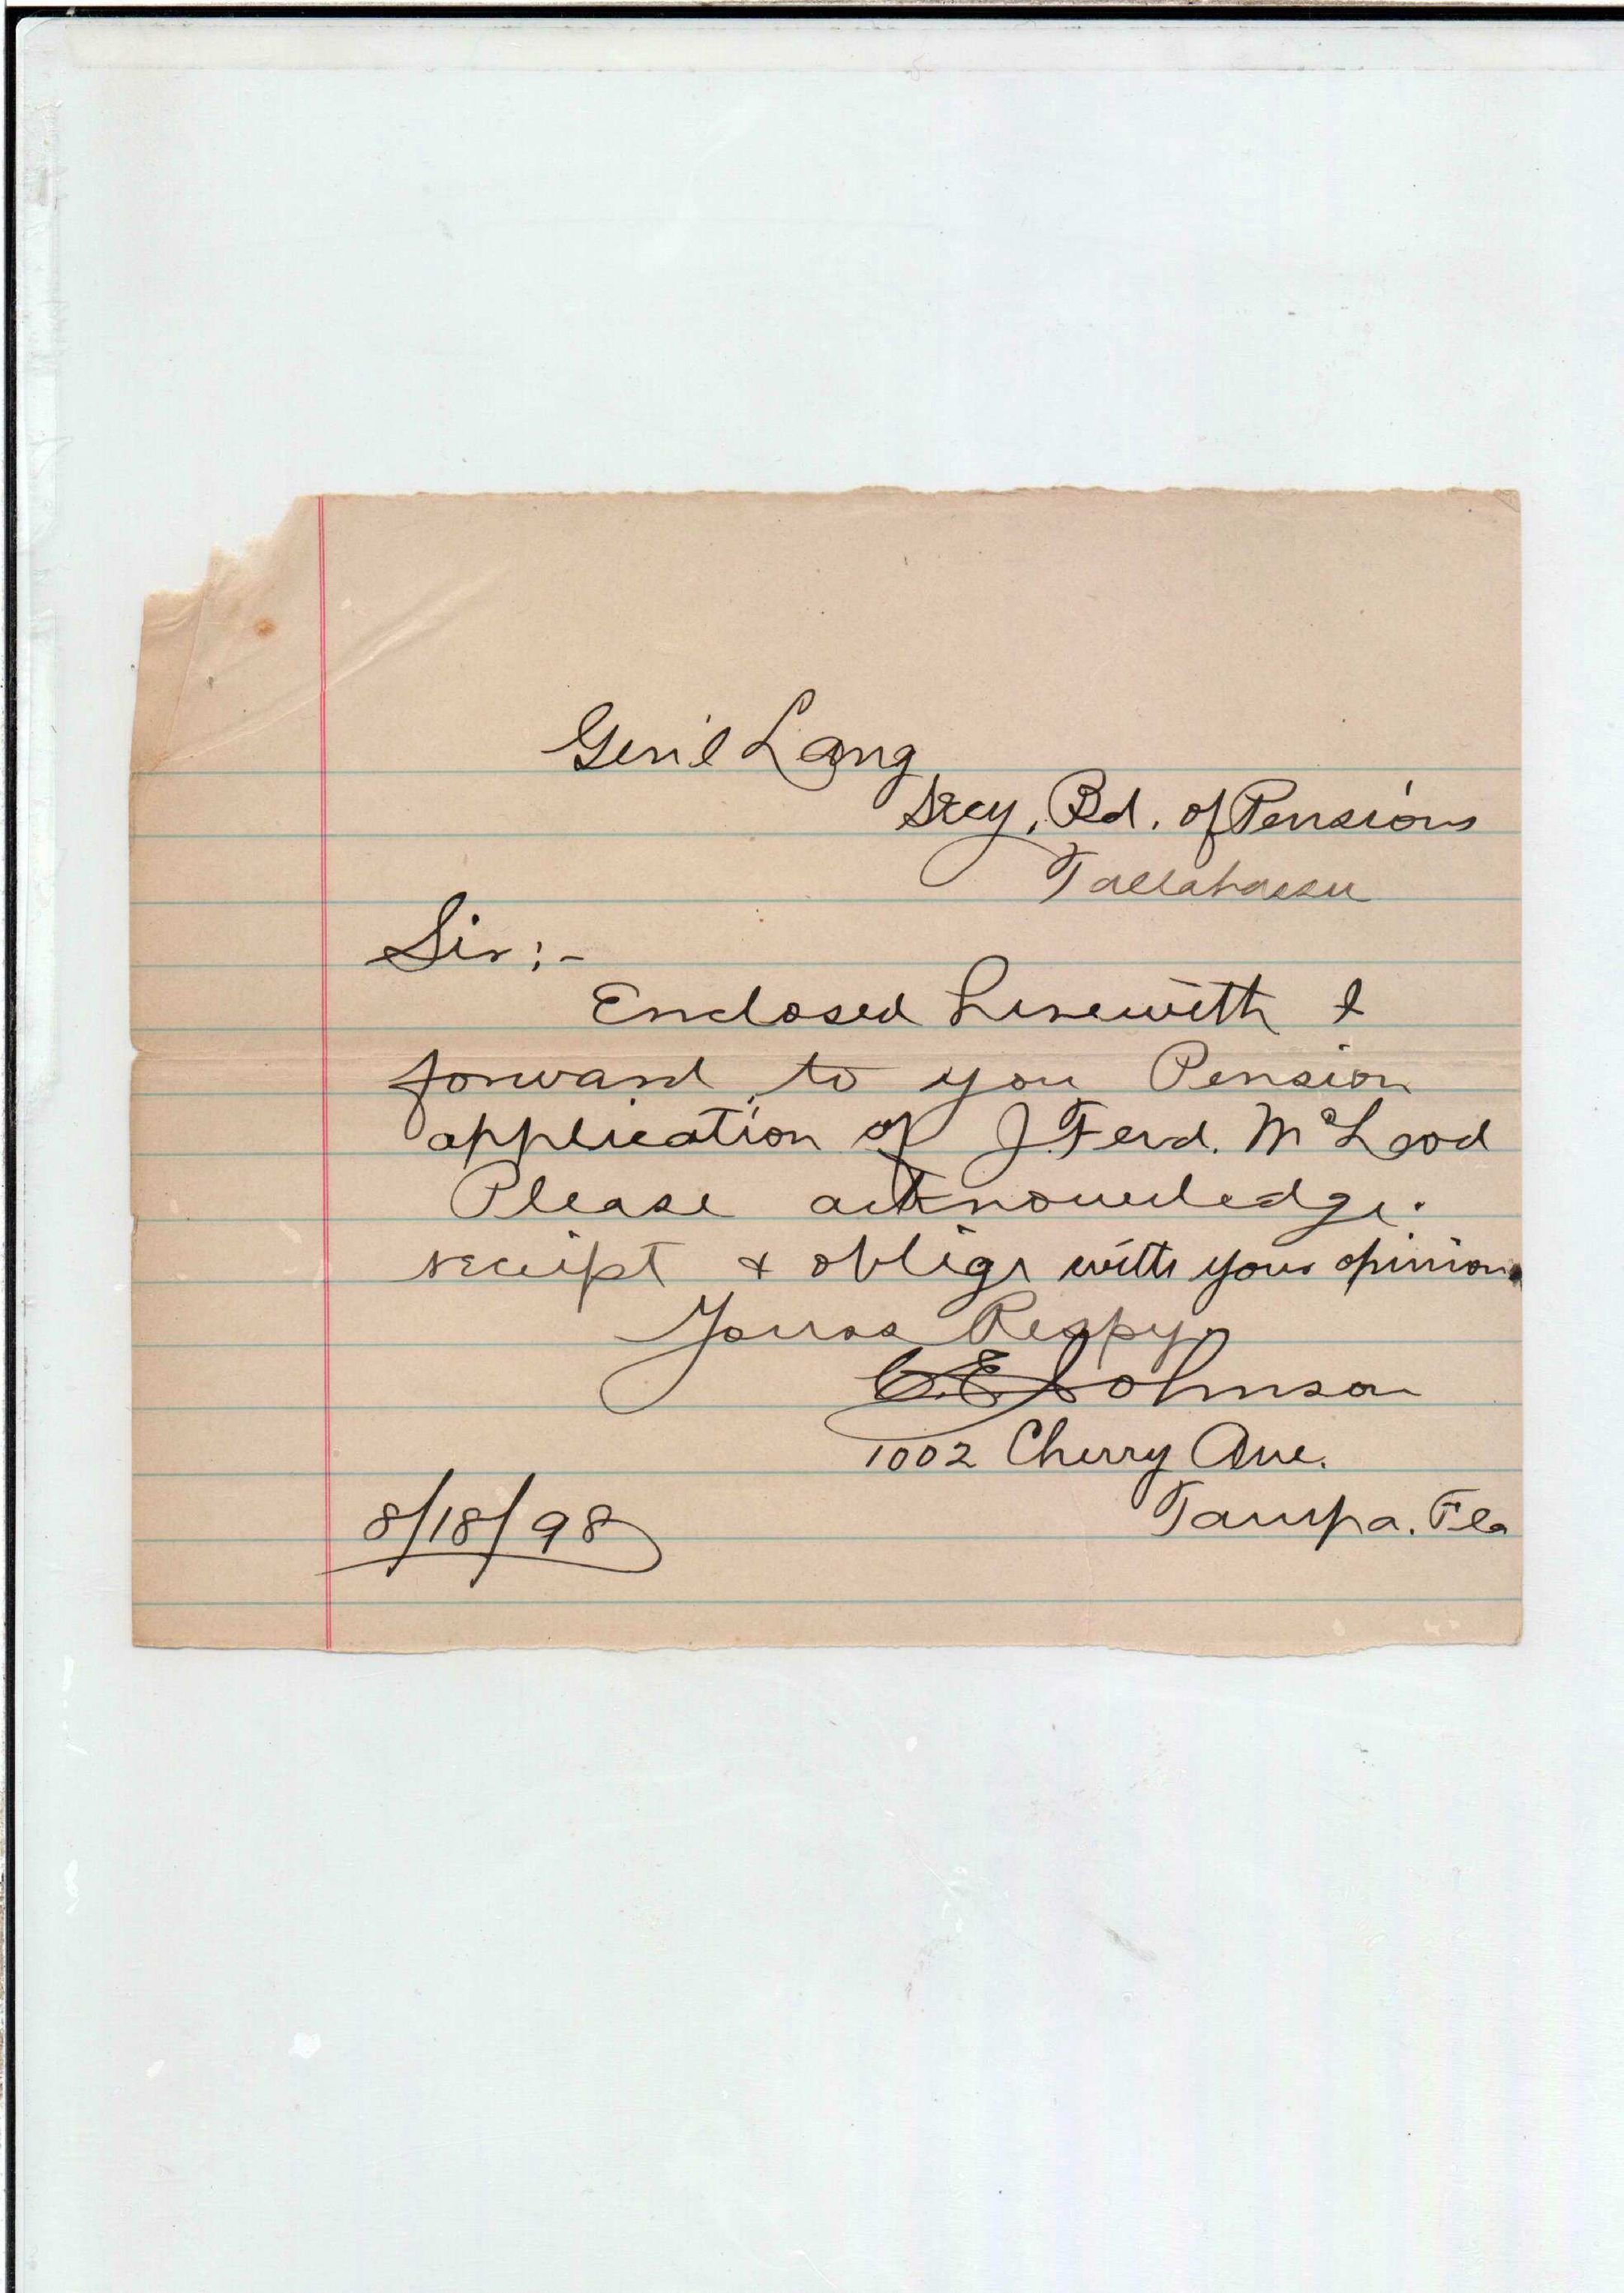 Gen'l Lang
Secy, Bd. of Pensions
Tallahassee
Sir:-
Enclosed herewith I
forward to you Pension
application of J. Ferd. McLeod
Please acknowledge.
receipt & oblige with your opinion.
Yours Respy.
C.E. Johnson
1002 Cherry Ave.
Tampa. Fla
8/18/98